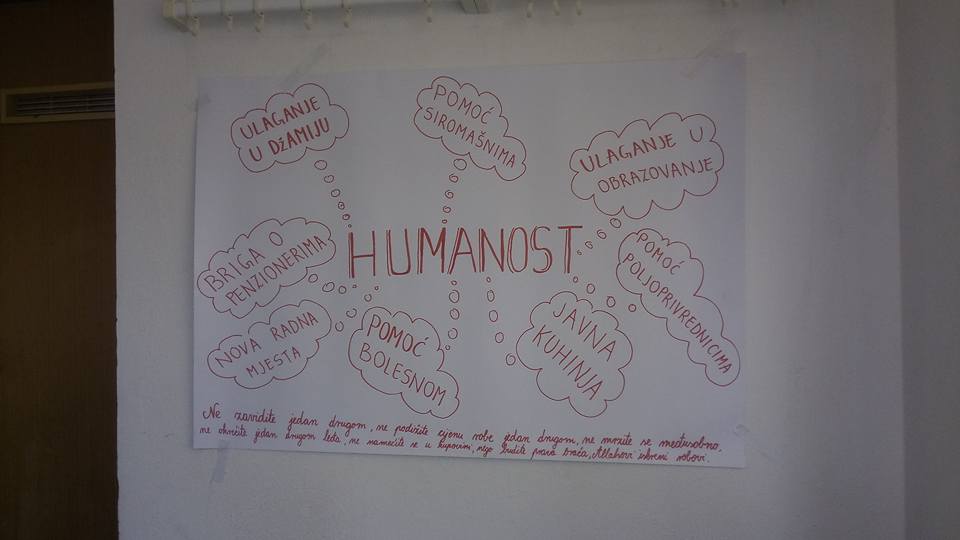 ULAGANJE
U DŽAMIJU
POMOĆ
SIROMAŠNIMA
ULAGANJE U
OBRAZOVANJE
HUMANOST
BRIGA O
PENZIONERIMA
POMOĆ
POLJOPRIVREDNICIMA
NOVA RADNA
MJESTA
POMOĆ
BOLESNOM
JAVNA
KUHINJA
Ne zavidite jedan drugom, ne podižite cijenu robe jedan drugom, ne mrzite se međusobno,
ne okrećite jedan drugom leđa, ne namećite se u kupovini, nego budite prava braća, Allahovi iskreni robovi.